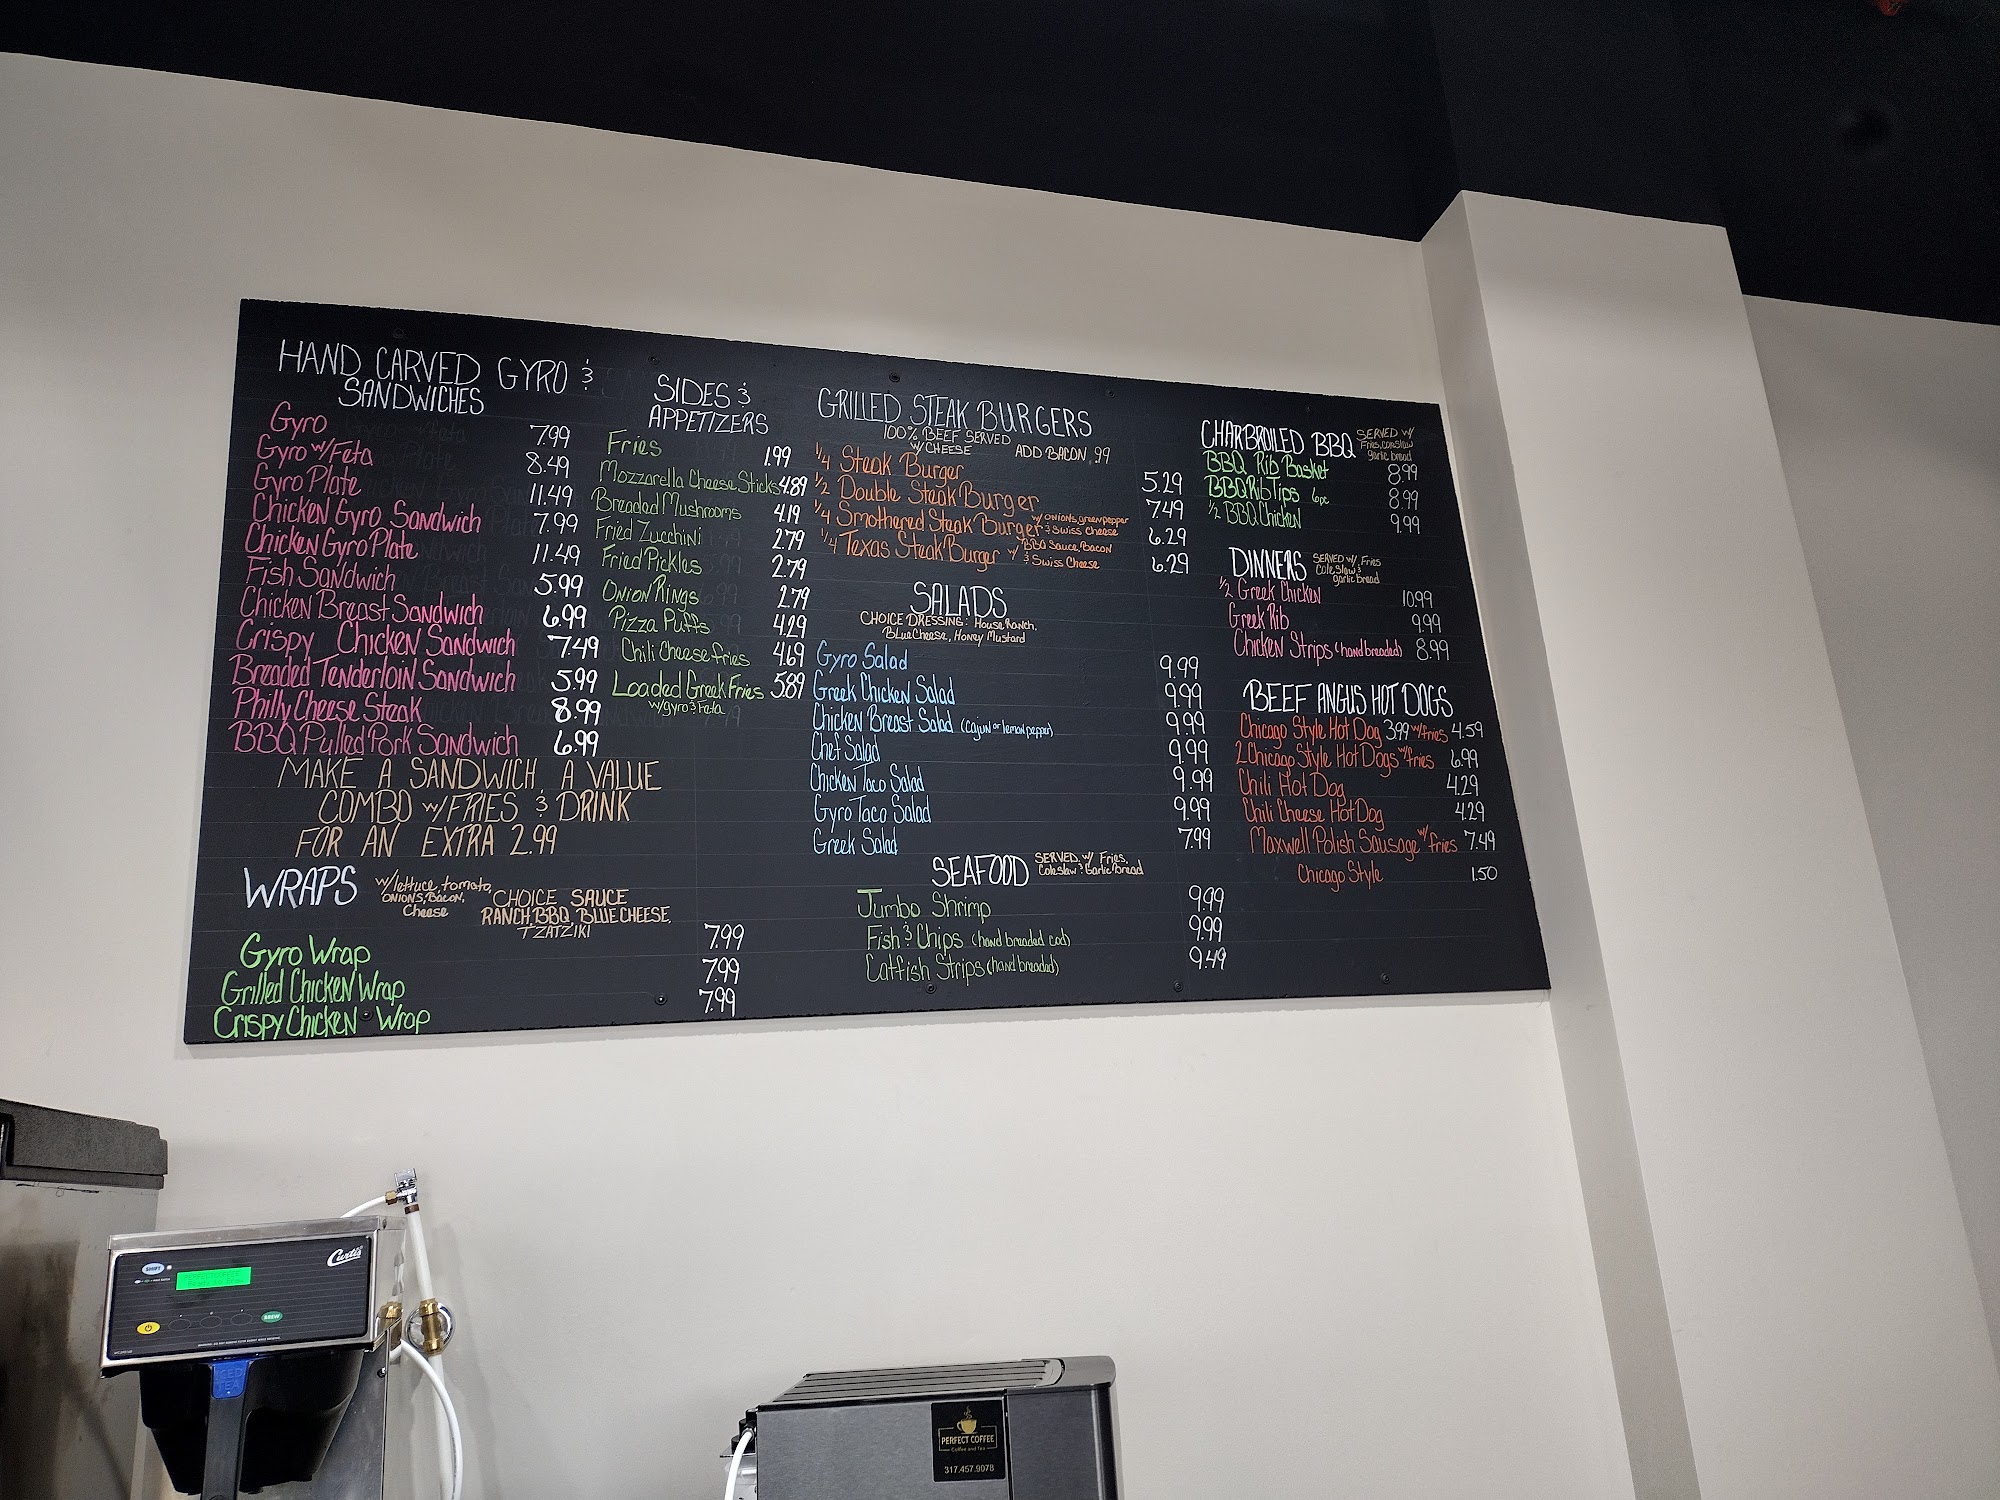 HAND CARVED GYRO &
SANDWICHES
Gyro 7.99
Gyro w/Feta 8.49
Gyro Plate 11.49
Chicken Gyro Sandwich 7.99
Chicken Gyro Plate 11.49
Fish Sandwich 5.99
Chicken Breast Sandwich 6.99
Crispy Chicken Sandwich 7.49
Breaded Tenderloin Sandwich 5.99
Philly Cheese Steak 8.99
BBQ Pulled Pork Sandwich 6.99
MAKE A SANDWICH, A VALUE
COMBO w/FRIES & DRINK
FOR AN EXTRA 2.99
WRAPS
w/lettuce, tomato,
ONIONS, BACON,
Cheese
CHOICE SAUCE
RANCH, BBQ, BLUE CHEESE,
TZATZIKI
Gyro Wrap 7.99
Grilled Chicken Wrap 7.99
Crispy Chicken Wrap 7.99
SIDES &
APPETIZERS
Fries 1.99
Mozzarella Cheese Sticks 4.89
Breaded Mushrooms 4.19
Fried Zucchini 2.79
Fried Pickles 2.79
Onion Rings 2.79
Pizza Puffs 4.29
Chili Cheese fries 4.69
Loaded Greek Fries 5.89
w/gyro & Feta
GRILLED STEAK BURGERS
100% BEEF SERVED
W/ CHEESE ADD BACON .99
1/4 Steak Burger 5.29
1/2 Double Steak Burger 7.49
1/4 Smothered Steak Burger w/ ONIONS, green pepper & Swiss Cheese 6.29
1/4 Texas Steak Burger w/ BBQ Sauce, Bacon & Swiss Cheese 6.29
SALADS
CHOICE DRESSING: House Ranch,
Blue Cheese, Honey Mustard
Gyro Salad 9.99
Greek Chicken Salad 9.99
Chicken Breast Salad (cajun or lemon pepper) 9.99
Chef Salad 9.99
Chicken Taco Salad 9.99
Gyro Taco Salad 9.99
Greek Salad 7.99
SEAFOOD
SERVED w/ Fries,
Coleslaw & Garlic Bread
Jumbo Shrimp 9.99
Fish & Chips (hand breaded cod) 9.99
Catfish Strips (hand breaded) 9.49
CHARBROILED BBQ
SERVED w/
Fries, coleslaw
garlic bread
BBQ Rib Basket 8.99
BBQ Rib Tips 6pc 8.99
1/2 BBQ Chicken 9.99
DINNERS
SERVED w/ Fries
Cole Slaw &
garlic bread
1/2 Greek Chicken 10.99
Greek Rib 9.99
Chicken Strips (hand breaded) 8.99
BEEF ANGUS HOT DOGS
Chicago Style Hot Dog 3.99 w/fries 4.59
2 Chicago Style Hot Dogs w/fries 6.99
Chili Hot Dog 4.29
Chili Cheese Hot Dog 4.29
Maxwell Polish Sausage w/fries 7.49
Chicago Style 1.50
Curtis
SHIFT
PERFECT COFFEE
Ready to Brew
BREW
PERFECT COFFEE
Coffee and Tea
317.457.9078